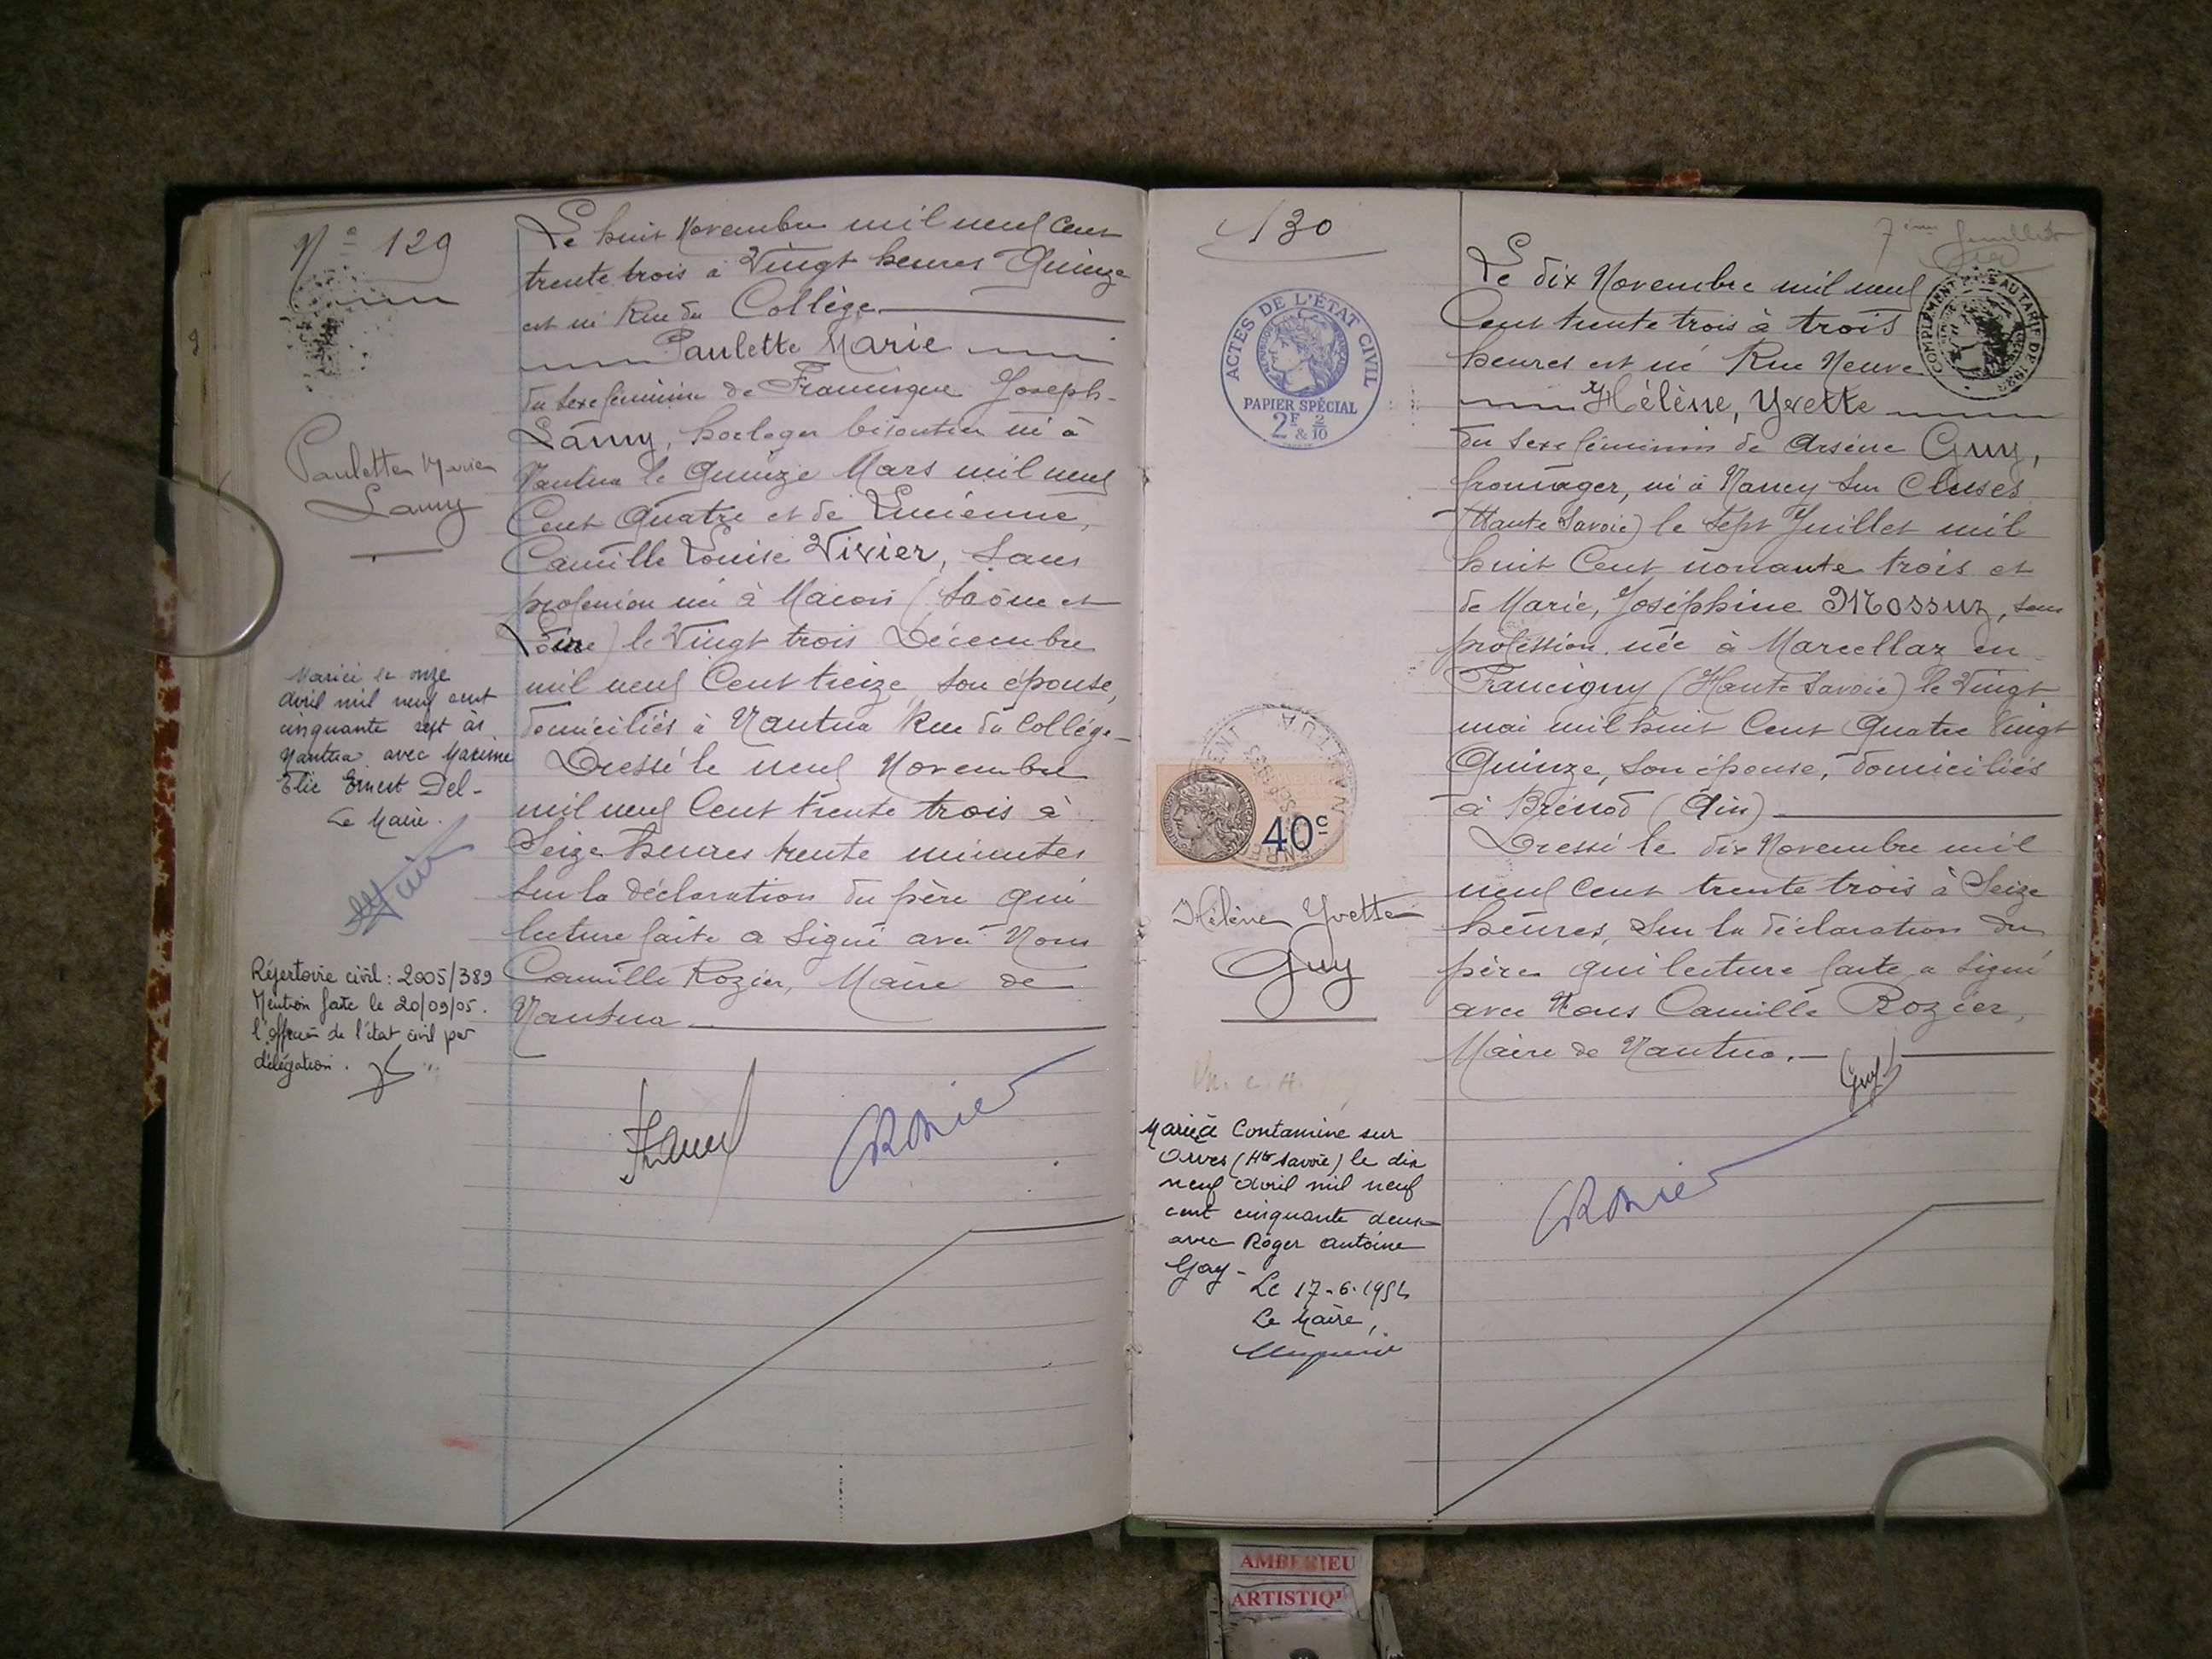 Nº 129
Paulette Marie
Lamy
Marié le onze
avril mil neuf cent
cinquante sept à
Nantua avec Maxime
Elie Ernest Del-
Le Maire.
Répertoire civil : 2005/389
Mention faite le 20/09/05.
l'officier de l'état civil par
délégation.
Le huit Novembre mil neuf Cent
trente trois à Vingt heures Quinze
est né Rue du Collège
Paulette Marie
du sexe féminin de Francisque Joseph-
Lamy, horloger bijoutier né à
Nantua le Quinze Mars mil neuf
Cent Quatre et de Lucienne,
Camille Louise Vivier, sans
profession née à Macon (Saône et
Loire) le Vingt trois Décembre
mil neuf Cent treize, son épouse,
domiciliés à Nantua Rue du Collège-
Dressé le neuf Novembre
mil neuf Cent trente trois à
Seize heures trente minutes
sur la déclaration du père qui
lecture faite a signé avec Nous
Camille Rozier, Maire de
Nantua
Rozier
130
ACTES DE L'ÉTAT CIVIL
PAPIER SPÉCIAL
2F & 2/10
NANTUA
40c
Hélène Yvette
Guy
Mariée à Contamine sur
Arves (Hte Savoie) le dix
neuf avril mil neuf
cent cinquante deux
avec Roger Antoine
Gay-
Le 17-6-1952
Le Maire,
7ème feuillet
COMPLEMENT AU TARIF DE
Le dix Novembre mil neuf
Cent trente trois à trois
heures est né Rue Neuve
Hélène, Yvette
du sexe féminin de Arsène Guy,
fromager, né à Nancy sur Cluses
(Haute Savoie) le sept Juillet mil
huit Cent nonante trois et
de Marie, Joséphine Mossuz, sans
profession née à Marcellaz en
Faucigny (Haute Savoie) le Vingt
mai mil huit Cent Quatre Vingt
Quinze, son épouse, domiciliés
à Brénod (Ain)
Dressé le dix Novembre mil
neuf Cent trente trois à Seize
heures, sur la déclaration du
père qui lecture faite a signé
avec Nous Camille Rozier,
Maire de Nantua.
Guy
Rozier
AMBERIEU
ARTISTIQ